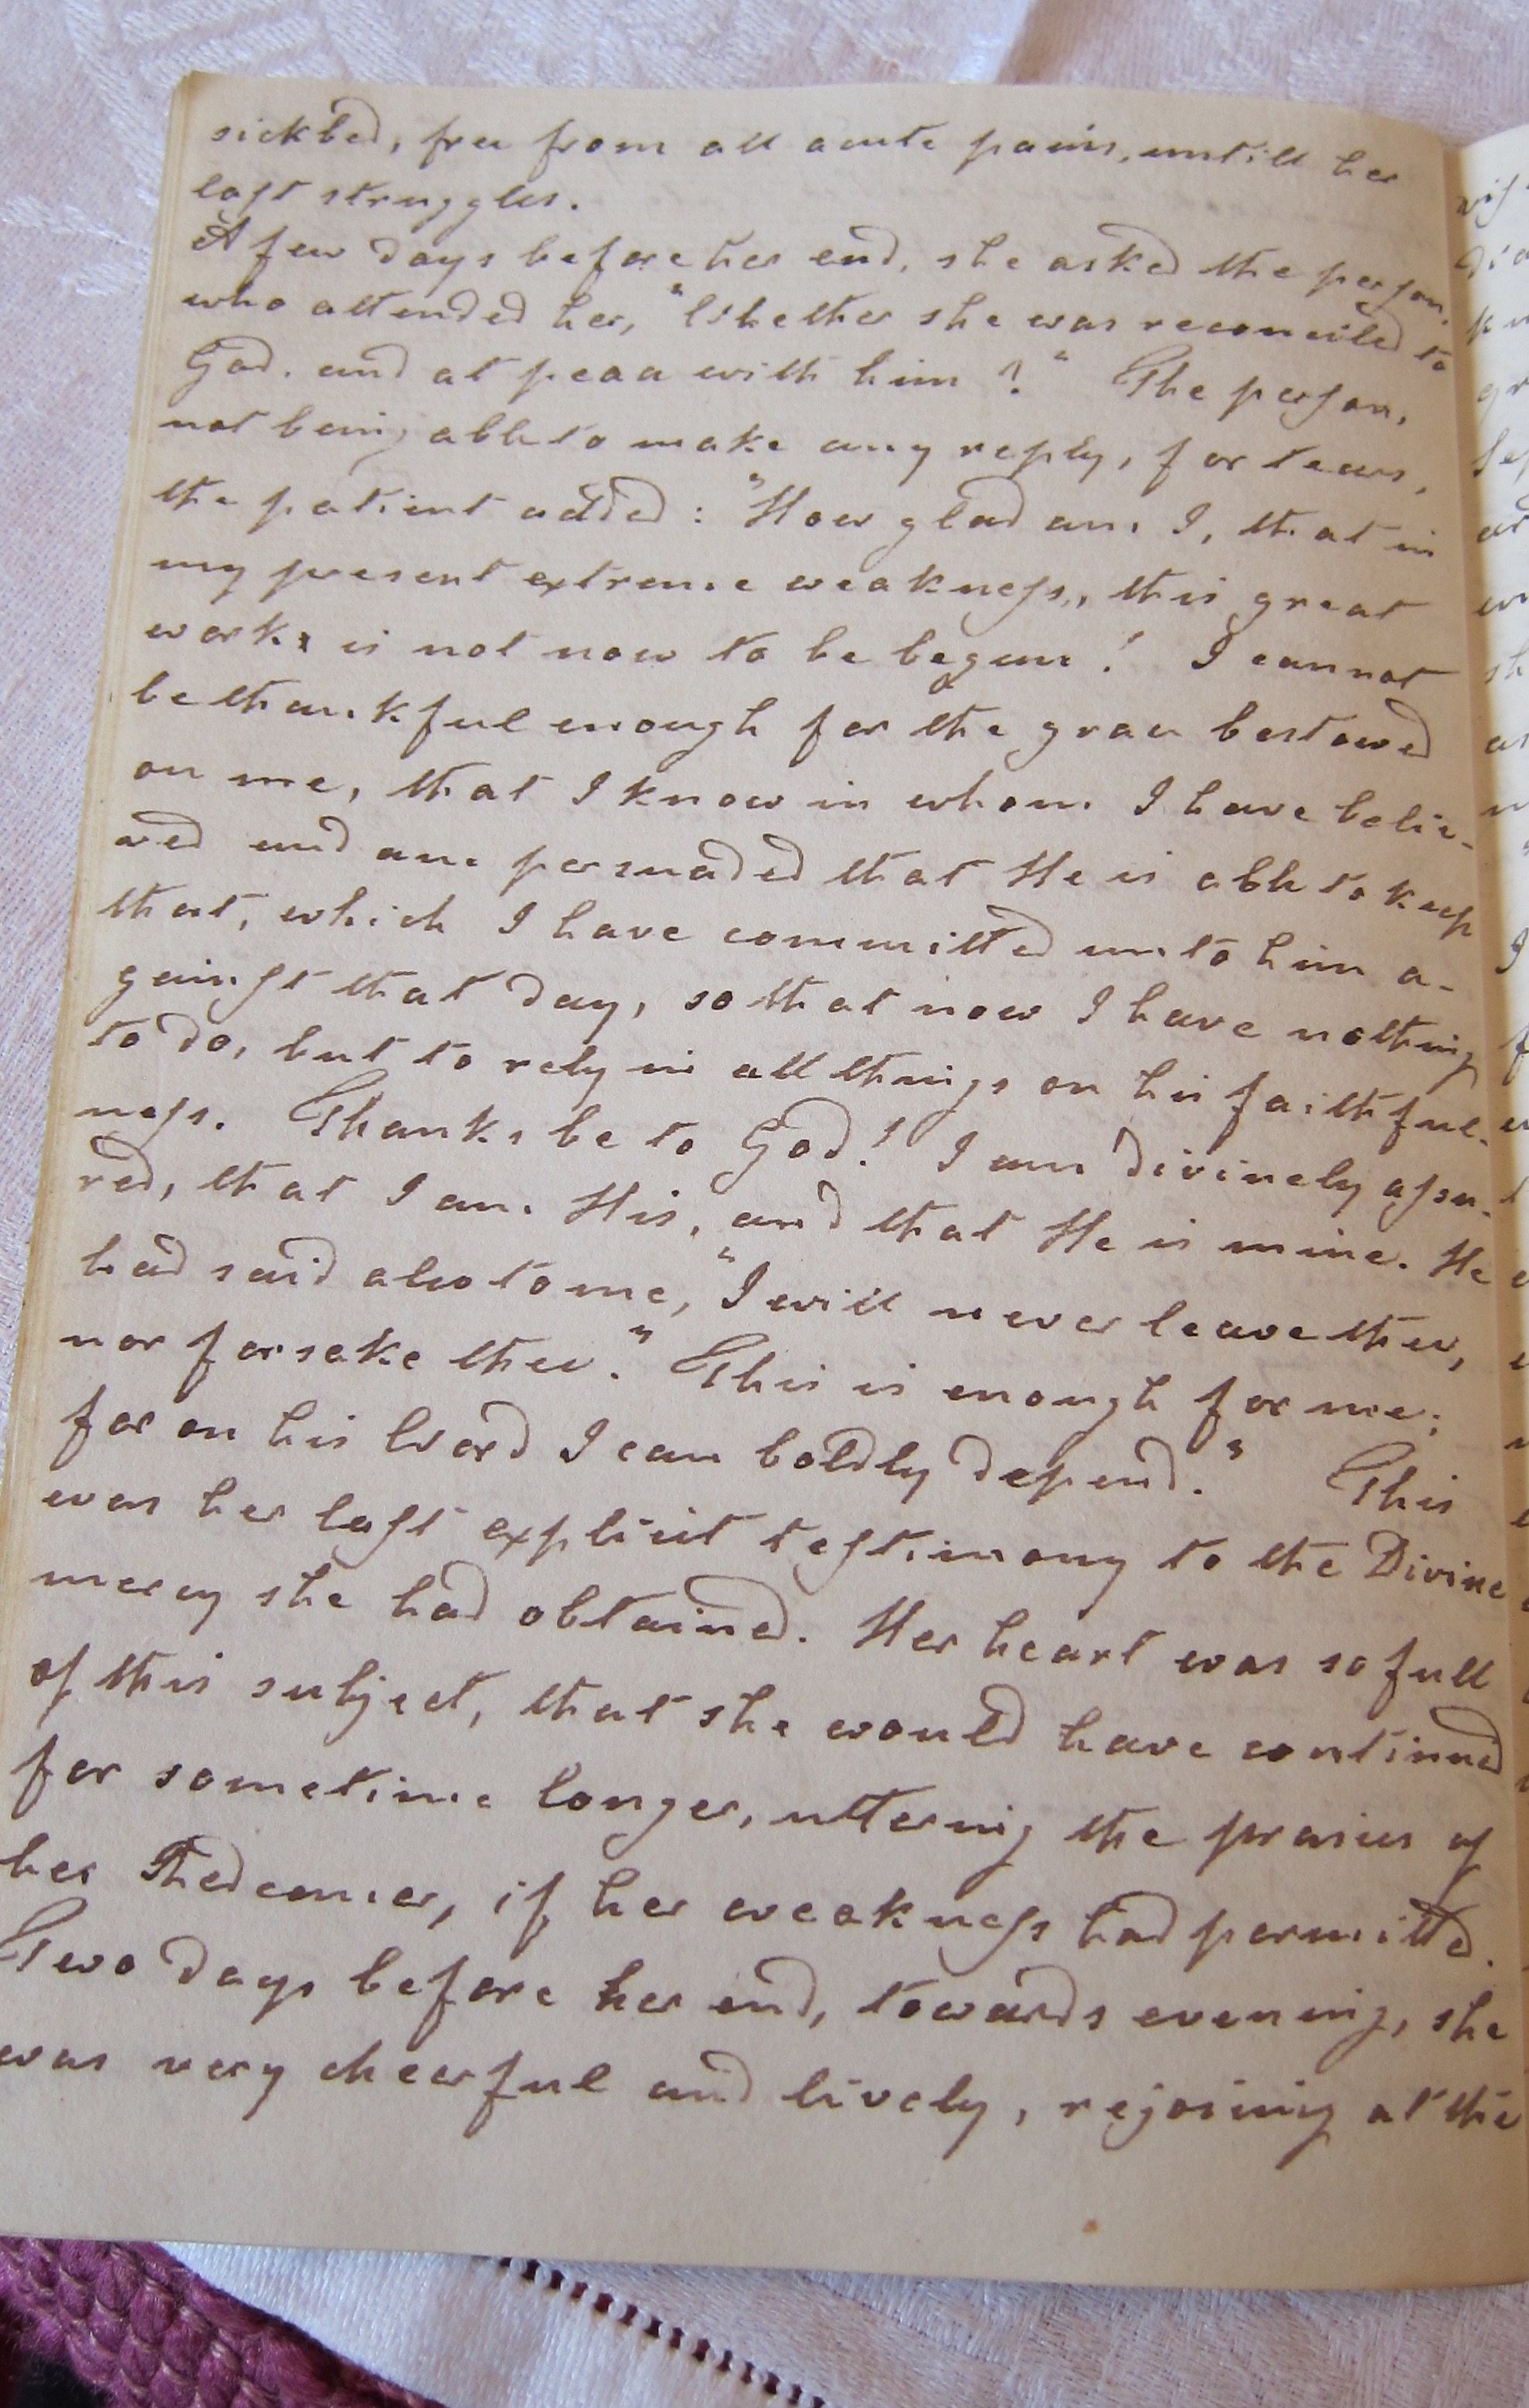 sickbed, free from all acute pains, untill her
last struggles.
A few days before her end, she asked the person,
who attended her, "Whether she was reconciled to
God, and at peace with him?" The person,
not being able to make any reply, for tears,
the patient added: "How glad am I, that in
my present extreme weakness, this great
work, is not now to be begun! I cannot
be thankful enough for the grace bestowed
on me, that I know in whom I have belie-
ved and am persuaded that He is able to keep
that, which I have committed unto him a-
gainst that day, so that now I have nothing
to do, but to rely in all things on his faithful-
ness. Thanks be to God! I am divinely assu-
red, that I am His, and that He is mine. He
had said also to me, "I will never leave thee,
nor forsake thee." This is enough for me;
for on his Word I can boldly depend." This
was her last explicit testimony to the Divine
mercy she had obtained. Her heart was so full
of this subject, that she would have continued
for sometime longer, uttering the praises of
her Redeemer, if her weakness had permitted.
Two days before her end, towards evening, she
was very cheerful and lively, rejoicing at the